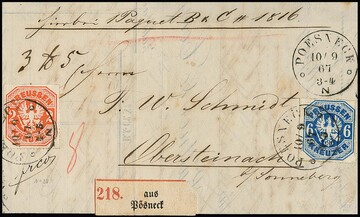 Hierbei 1 Paquet B & C № 1816
POESNECK
10/9
67
3-4
N
Herrn
J. W. Schmidt
PREUSSEN
PREUSSEN
6 6
KREUZER
Obersteinach
b/ Sonneberg
8
218. aus
Pösneck